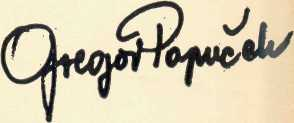 Gregor Papuček